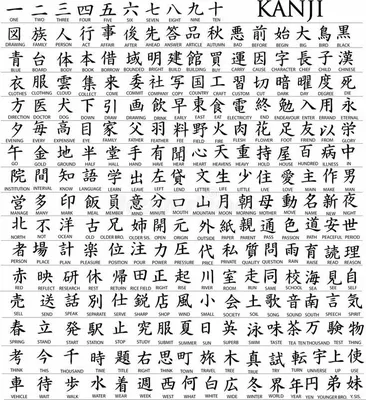 一 二 三 四 五 六 七 八 九 十 KANJI
ONE TWO THREE FOUR FIVE SIX SEVEN EIGHT NINE TEN
図 族 人 行 事 後 先 答 品 秋 悪 前 始 大 鳥 黒
DRAWING FAMILY PERSON ACT AFFAIR AFTER AHEAD ANSWER ARTICLE AUTUMN BAD BEFORE BEGIN BIG BIRD BLACK
青 台 体 本 借 域 明 建 館 買 運 因 字 長 子 漢
BLUE BODY BOOK BORROW BRIGHT BUILD BUILDING BUY CARRY CAUSE CHARACTER CHIEF CHILD CHINESE
衣 服 雲 集 来 委 社 写 国 工 習 切 暗 曜 度 死
CLOTHES CLOTHING CLOUD COLLECT COME COMMIT COMPANY COPY COUNTRY CRAFT CUT DARK DAY DEGREE DIE
方 医 犬 下 引 画 飲 早 東 食 電 終 勉 入 用 永
DIRECTION DOCTOR DOG DOWN DRAW DRINK EARLY EAST EAT END ENDEAVOUR ENTER
夕 毎 高 目 家 父 羽 料 野 火 肉 花 足 友 以 栄
EVENING EVERY EXPENSIVE EYE FAMILY FATHER FEATHER FEE FIELD FIRE FLOWER FOOT FRIEND FROM GLORY
金 地 半 堂 手 有 聞 心 天 重 持 屋 百 病 中
GO GOLD GROUND HALF HALL HAND HAVE HEAR HEART HEAVENS HEAVY HOLD HOUSE HUNDRED ILLNESS IN
院 間 知 語 学 出 左 文 生 少 住 愛 主 作 男
INSTITUTION INTERVAL KNOW LANGUAGE LEARN LEAVE LEFT LETTER LIFE LITTLE LIVE LOVE MAIN MAKE MAN
営 多 印 飯 員 意 分 口 山 月 朝 母 動 名 新 夜
MANAGE MANY MARK MEAL MEMBER MIND MINUTE MOUTH MOUNTAIN MOON MORNING MOTHER MOVE NAME NEW NIGHT
北 不 洋 古 兄 姉 開 元 外 紙 親 通 色 道 安 世
NORTH NOT OCEAN OLD OLDER BRO. OLDER SIS. OPEN ORIGIN OUTSIDE PAPER PARENT PASS PASSION PATH PEACEFUL PERIOD
者 場 計 楽 位 注 力 圧 代 私 質 問 雨 育 読 理
PERSON PLACE PLAN PLEASURE POSITION POUR POWER PRESSURE PRICE PRIVATE QUALITY QUESTION RAIN RAISE READ REASON
赤 映 研 休 帰 田 正 起 川 室 走 同 校 海 見 自
RED REFLECT RESEARCH REST RETURN RICE FIELD RIGHT RISE RIVER ROOM RUN SAME SCHOOL SEA SEE SELF
売 送 話 別 仕 鋭 店 風 小 会 土 歌 音 南 言 気
SELL SEND SPEAK SEPARATE SERVE SHARP SHOP WIND SMALL SOCIETY SOIL SONG SOUND SOUTH SPEECH SPIRIT
春 立 発 駅 止 究 服 夏 日 英 泳 味 茶 万 験 物
SPRING STAND START STATION STOP STUDY SUBMIT SUMMER SUN SUPERB SWIM TASTE TEA TEN THOUSAND TEST THING
考 今 千 時 題 右 思 町 旅 木 真 試 転 宇 上 使
THINK THIS THOUSAND TIME TITLE RIGHT THOUGHT TOWN TRAVEL TREE TRUE TRY TURN UNIVERSE UP USE
車 待 歩 水 着 週 西 何 白 広 冬 界 年 円 弟 妹
VEHICLE WAIT WALK WATER WEAR WEEK WEST WHAT WHITE WIDE WINTER WORLD YEAR YEN YOUNGER BRO. Y.SIS.